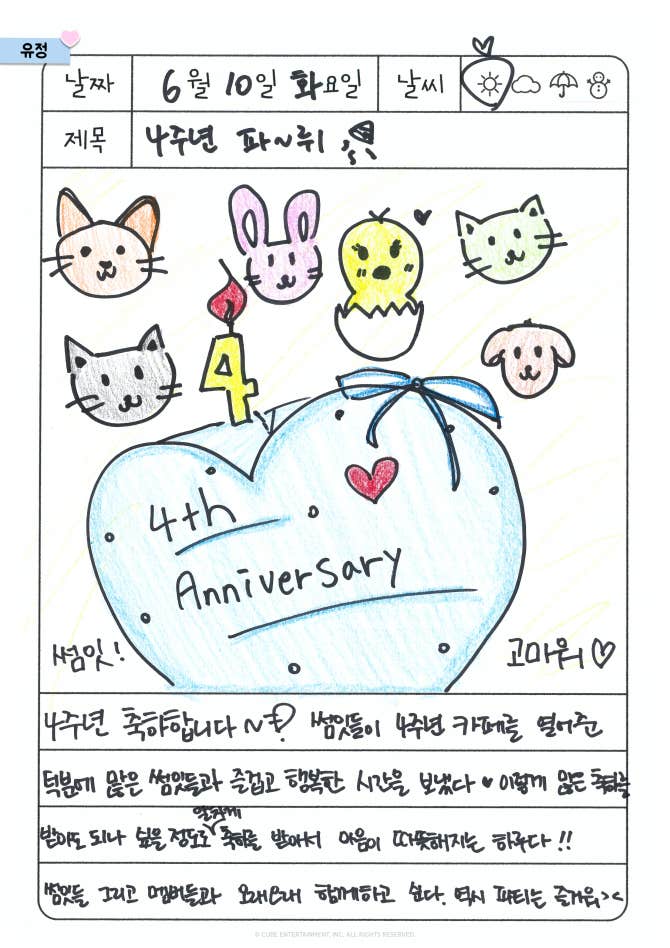 유정
날짜 6월 10일 화요일 날씨
제목 4주년 파~뤼
4
4th
Anniversary
썸잇!
고마워♡
4주년 축하합니다 ~ 썸잇들이 4주년 카페를 열어준
덕분에 많은 썸잇들과 즐겁고 행복한 시간을 보냈다 ♥ 이렇게 많은 축하를
받아도 되나 싶을 정도로 축하를 받아서 마음이 따뜻해지는 하루다!!
썸잇들 그리고 멤버들과 오래오래 함께하고 싶다. 역시 파티는 즐거워><
© CUBE ENTERTAINMENT, INC. ALL RIGHTS RESERVED.